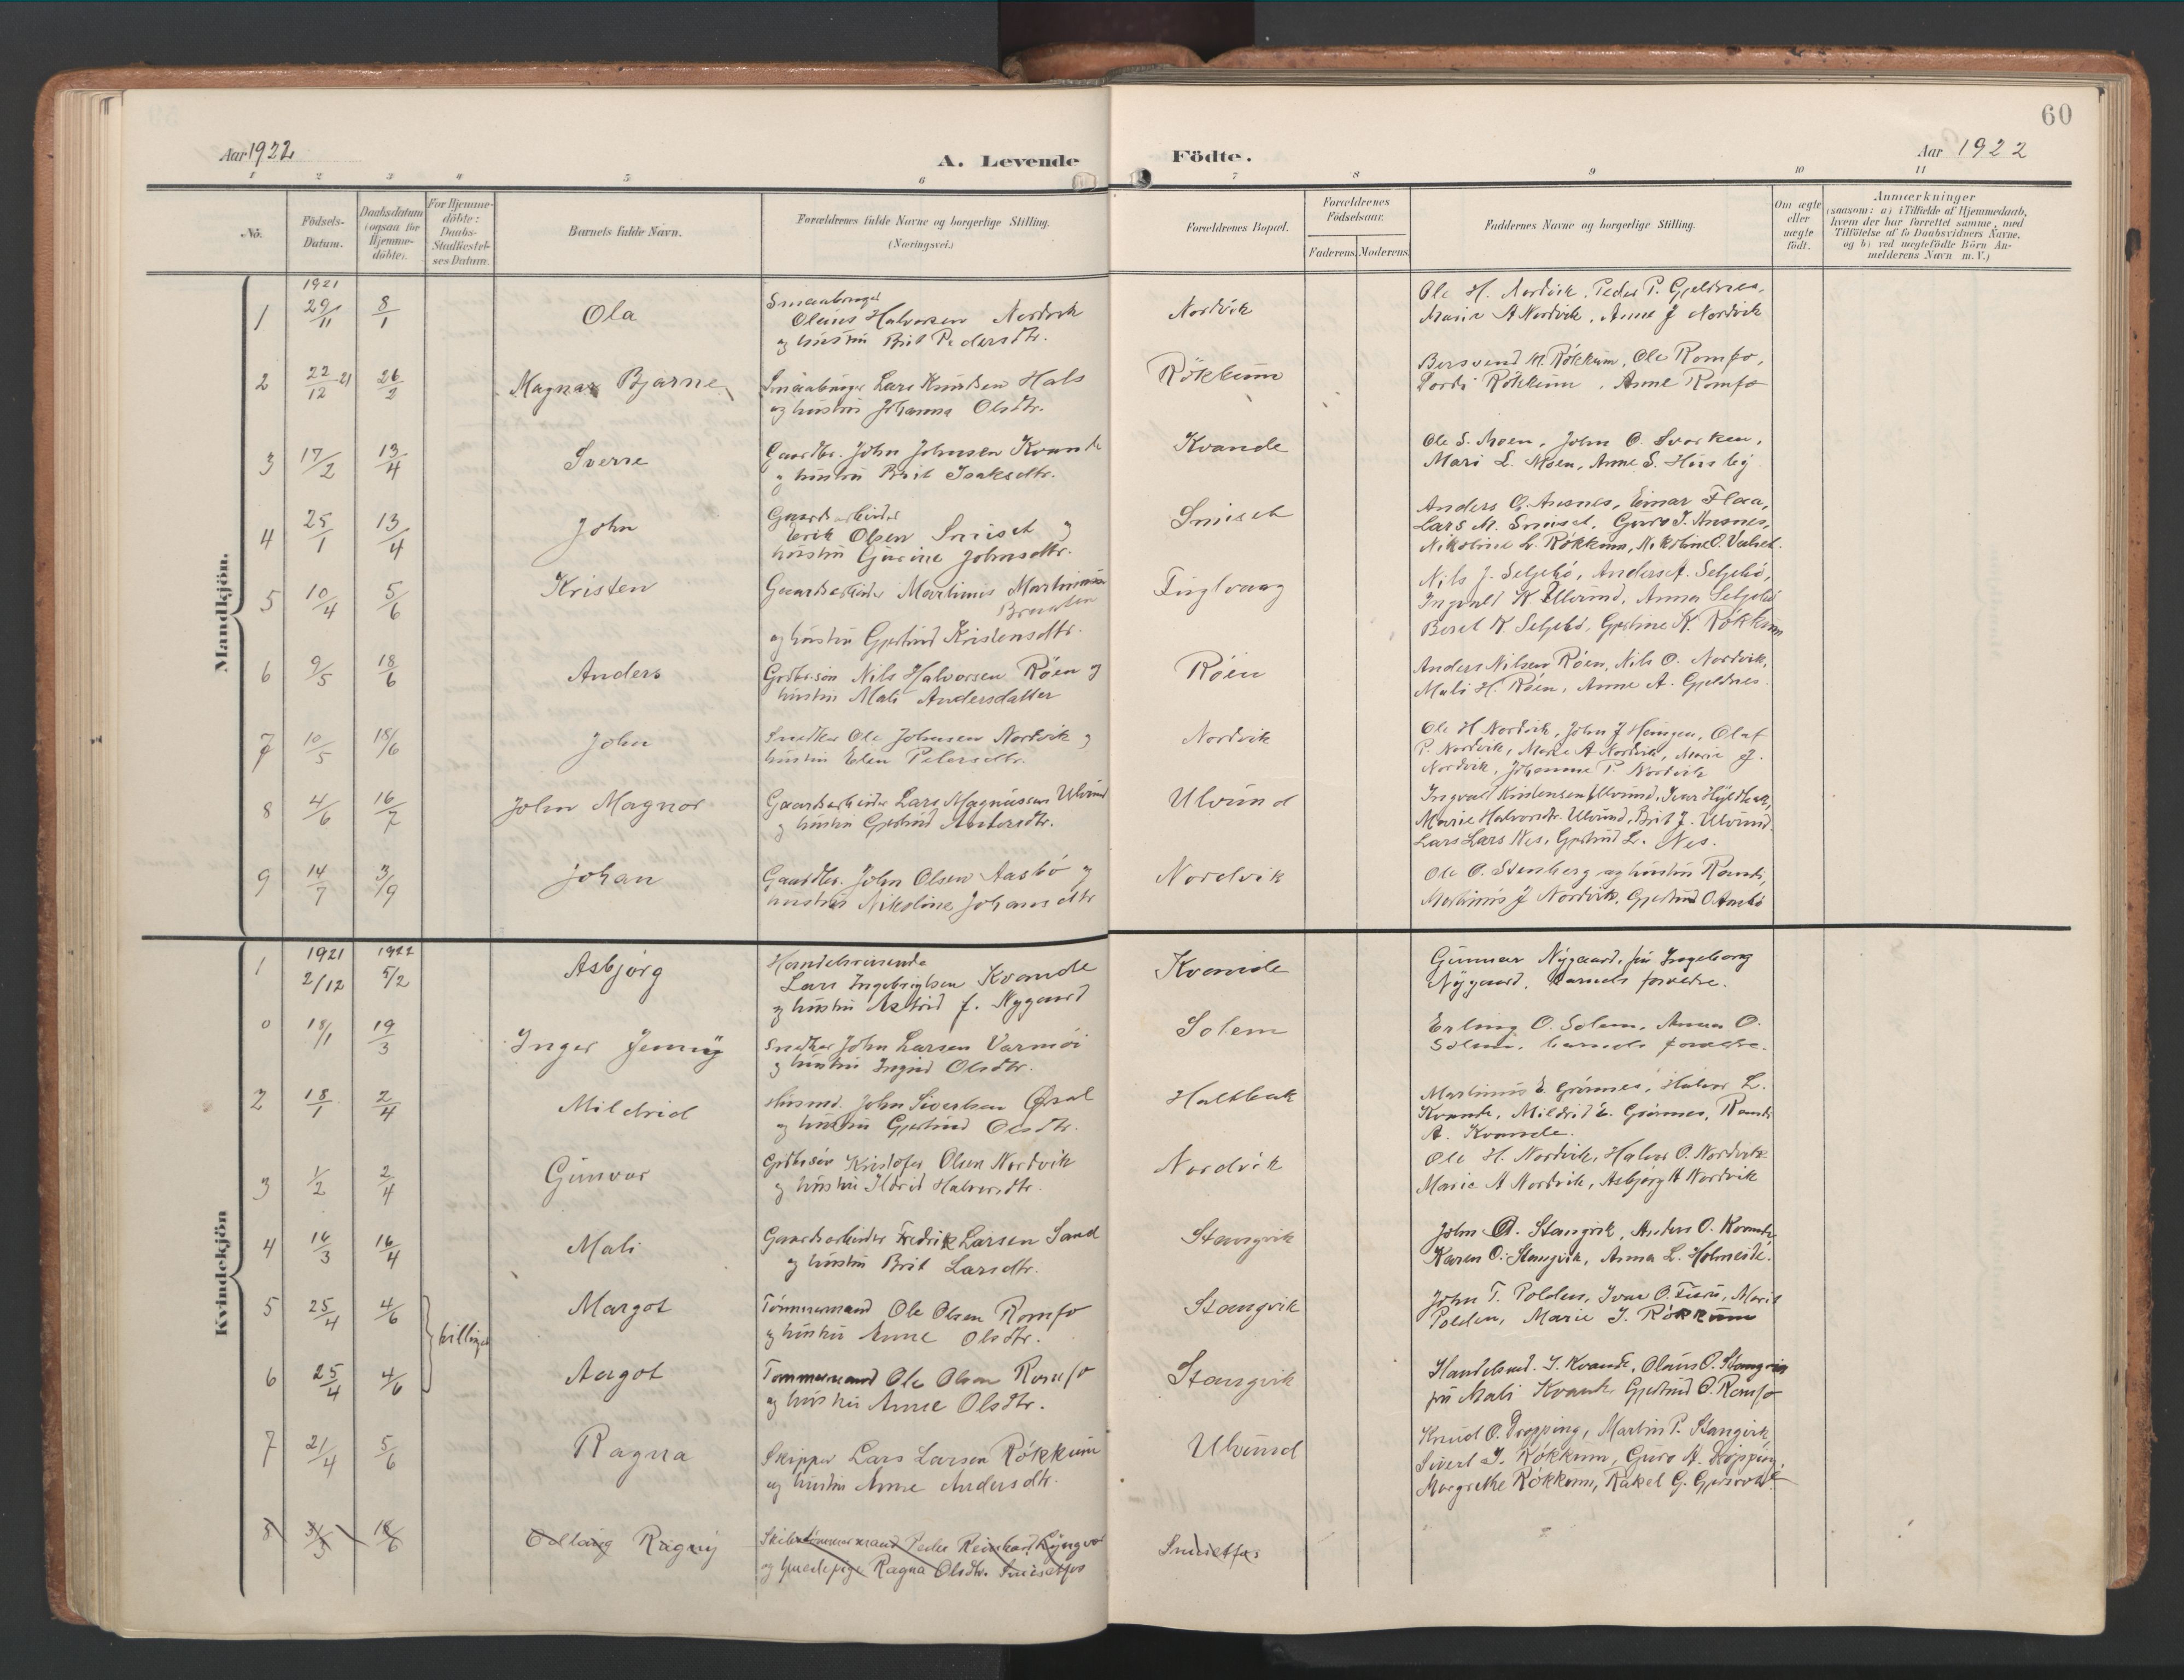 60
Aar 1922
A. Levende
Födte.
Aar 1922
1 2 3 4 5 6 7 8 9 10 11
No.
Födsels-Datum.
Daabsdatum (ogsaa for Hjemme-döbte).
For Hjemme-döbte: Daabs-Stadfæstel-ses Datum.
Barnets fulde Navn.
Forældrenes fulde Navne og borgerlige Stilling.
(Næringsvei.)
Forældrenes Bopæl.
Forældrenes Födselsaar.
Faderens. Moderens.
Faddernes Navne og borgerlige Stilling.
Om ægte eller uægte födt.
Anmærkninger
(saasom: a) i Tilfælde af Hjemmedaab, hvem der har forrettet samme, med Tilföielse af to Daabsvidners Navne, og b) ved uægtefödte Börn Anmelderens Navn m. V.)
Mandkjön.
1 1921 29/11 8/1 Ola
Smaabruger
Olaus Halvorsen Nordvik
og hustru Brit Pedersdtr.
Nordvik
Ole H. Nordvik, Peder P. Gjeldnes,
Marie A Nordvik, Anne J Nordvik
2 22/12 21 26/2 Magnar Bjarne
Smaabruger Lars Knudsen Hals
og hustru Johanna Olsdtr.
Rökkum
Bersvend M. Rökkum, Ole Romfo,
Rökkum, Anne Romfo
3 17/2 13/4 Sverre
Gaardbr. John Johnsen Kvande
og hustru Brit Isaksdtr.
Kvande
Ole S. Moen, John O. Svorken,
Mari L. Moen, Anne S. Husby
4 25/1 13/4 John
Gaardsarbeider
Erik Olsen Smiset og
hustru Gurine Johnsdtr.
Smiset
Anders E. Ansnes, Einar Flaa,
Lars M. Smiset, Guro I. Ansnes,
Nikoline L. Rökkum, Nikoline O.
5 10/4 5/6 Kristen
Gaardsarbeider Martinus Martinusen
og hustru Gjertrud Kristensdtr.
Tinglvaag
Nils J. Seljebö, Anders A. Seljebö,
Ingvald K. Ulvund, Anna Seljebö
Beret K. Seljebö, Gjertine K. Rökkum
6 9/5 18/6 Anders
Gdbr.sön Nils Halvorsen Röen og
hustru Mali Andersdatter
Röen
Anders Nilsen Röen, Nils O. Nordvik,
Mali H. Röen, Anne A. Gjeldnes.
7 10/5 18/6 John
Snedker Ole Johnsen Nordvik og
hustru Elen Petersdtr.
Nordvik
Ole H Nordvik, John J Heingen, Olaf
P. Nordvik, Marie A Nordvik, Marie J.
Nordvik, Johanne P. Nordvik
8 4/6 16/7 John Magnor
Gaardsarbeider Lars Magnussen Ulvund
og hustru Gjertrud Andersdtr.
Ulvund
Ingvald Kristensen Ulvund, Ivar
Marie Halvorsdtr. Ulvund, Brit J. Ulvund
Lars Lars Nes, Gjertrud L. Nes.
9 14/7 3/9 Johan
Gaardbr. John Olsen Aasbö og
hustru Nikoline Johansdtr
Nordvik
Ole O. Stenberg og hustru Randi,
Martinus J Nordvik, Gjertrud O Aasbö
Kvindekjön
1 1921 2/12 1922 5/2 Asbjörg
Handelsreisende
Lars Ingebrigtsen Kvande
og hustru Astrid f. Nygaard
Kvande
Gunnar Nygaard, fru Ingeborg
Nygaard, barnets forældre.
0 18/1 19/3 Inger Jenny
Snedker John Larsen Varmöi
og hustru Ingrid Olsdtr.
Solem
Erling O. Solem, Anna O.
Solem, barnets forældre.
2 18/1 2/4 Mildrid
Husmd. John Sivertsen Öxal
og hustru Gjertrud Olsdtr.
Haltbak
Martinus E. Grönnes, Halvor L.
Kvande, Mildrid E. Grönnes, Randi
A. Kvande.
3 1/2 2/4 Gunvor
Gdbr.sön Kristofer Olsen Nordvik
og hustru Ildrid Halvorsdtr.
Nordvik
Ole H. Nordvik, Halvor O. Nordvik
Marie A Nordvik, Asbjörg H Nordvik
4 16/3 16/4 Mali
Gaardsarbeider Fredrik Larsen Sand
og hustru Brit Larsdtr.
Stangvik
John O. Stangvik, Anders O. Kvande,
Karen O. Stangvik, Anna L. Holmeide.
5 25/4 4/6 Margot
Tömmermand Ole Olsen Romfo
og hustru Anne Olsdtr.
Stangvik
John T. Polden, Ivar O. Furu, Marit
Polden, Marie J. Rökkum
tvillinger
6 25/4 4/6 Aagot
Tömmermand Ole Olsen Romfo
og hustru Anne Olsdtr.
Stangvik
Handelsmd. I. Kvande, Olaus O. Stangvik
fru Mali Kvande, Gjertrud O. Romfo
7 21/4 5/6 Ragna
Skipper Lars Larsen Rökkum
og hustru Anne Andersdtr.
Ulvund
Knud O. Dropping, Martin P. Stangvik,
Sivert J. Rökkum, Guro A. Dropping,
Margrethe Rökkum, Rakel G.
8 3/5 18/6 Odlaug Ragny
Skibstömmermand Peder Reinhard Lyngvær
og Ragna Olsdtr. Smisetfos
Smisetfos